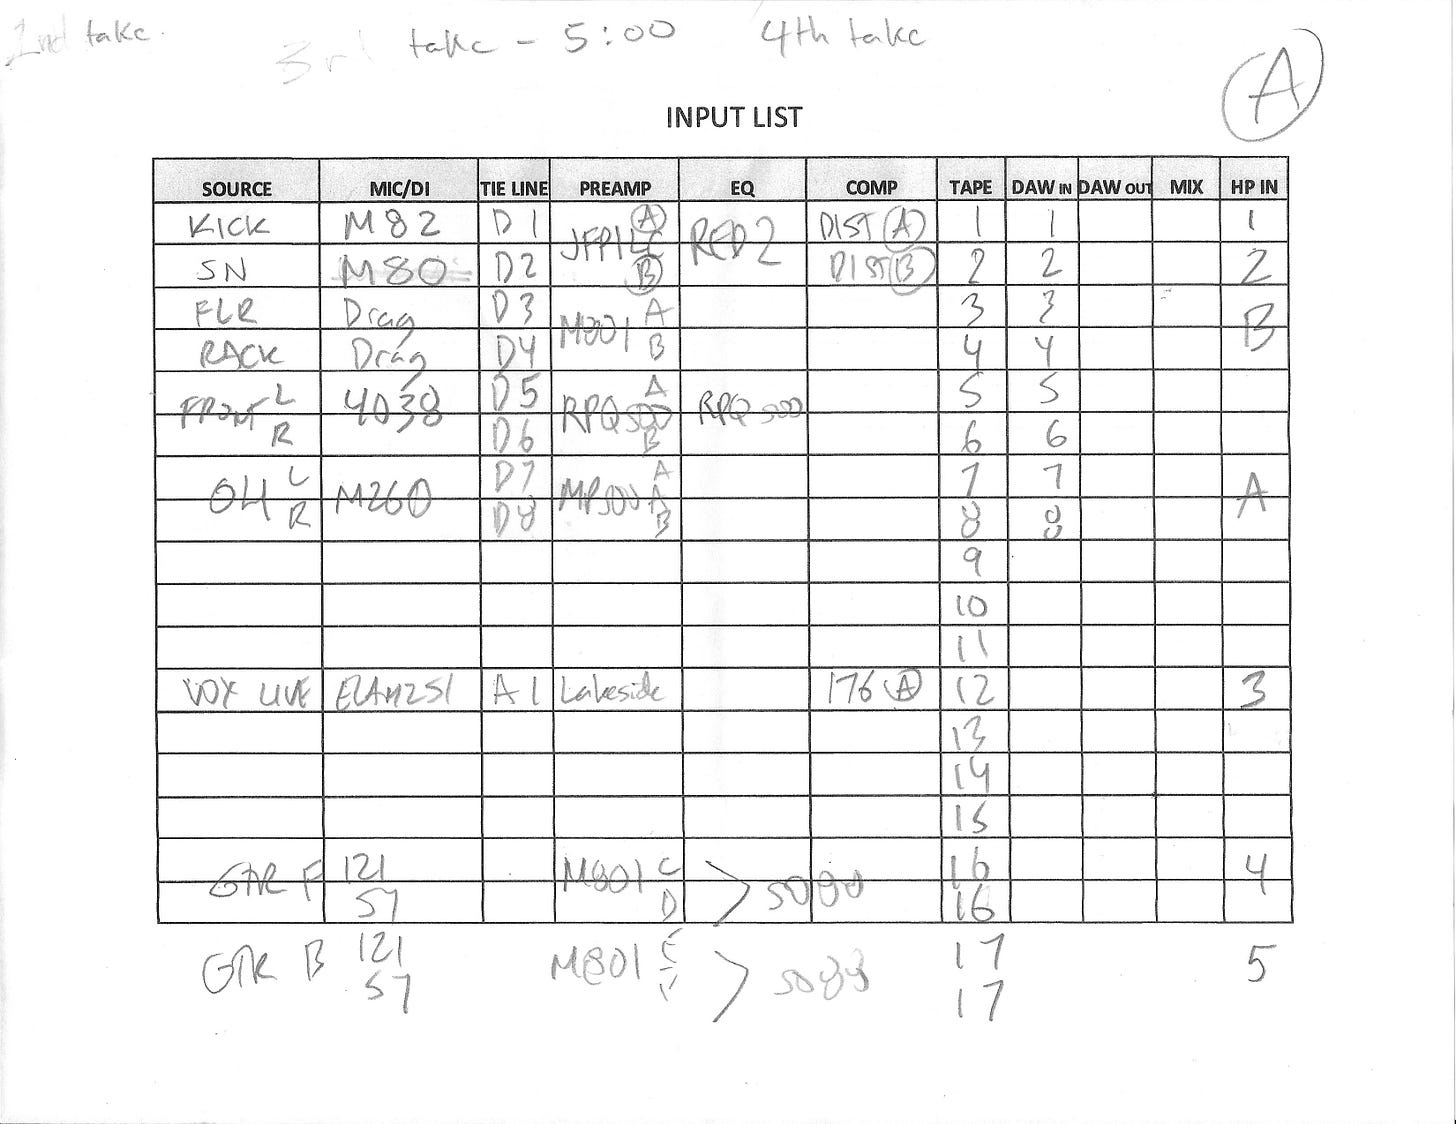 2nd take.
3rd take - 5:00
4th take
A
INPUT LIST
SOURCE MIC/DI TIE LINE PREAMP EQ COMP TAPE DAW IN DAW OUT MIX HP IN
KICK M82 D1 JFP1LC A RED2 DIST A 1 1 1
SN M80 D2 B DIST B 2 2 2
FLR Drag D3 M801 A 3 3 B
RACK Drag D4 B 4 4
FRONT L 4038 D5 RPQ500 A RPQ500 5 5
R D6 B 6 6
OH L M260 D7 MP500 A 7 7 A
R D8 B 8 8
9
10
11
VOX LIVE ELAM251 A1 Lakeside 176 A 12 3
13
14
15
GTR F 121 M801 C > 5088 16 4
57 D 16
GTR B 121 M801 > 5088 17 5
57 17